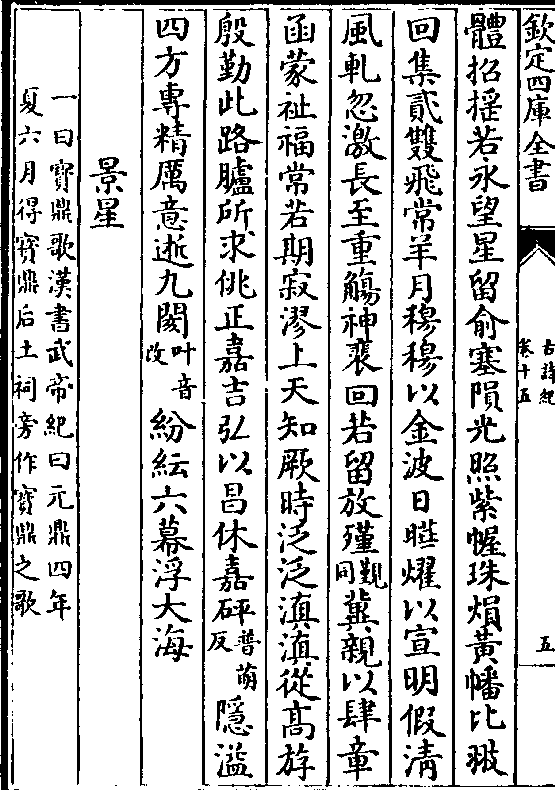 欽定四庫全書
古詩紀
卷十五
五
體招摇若永望星留俞塞隕光照紫幄珠熉黄幡比翄
回集貳雙飛常羊月穆穆以金波日華燿以宣明假清
風軋忽激長至重觴神裵回若留放殣同覲冀親以肆章
函蒙祉福常若期寂漻上天知厥時泛泛滇滇從髙斿
殷勤此路臚所求佻正嘉吉弘以昌休嘉砰普萌反隱溢
四方專精厲意逝九閡叶音改紛紜六幕浮大海
景星
一曰寶鼎歌漢書武帝紀曰元鼎四年
夏六月得寶鼎后土祠旁作寶鼎之歌